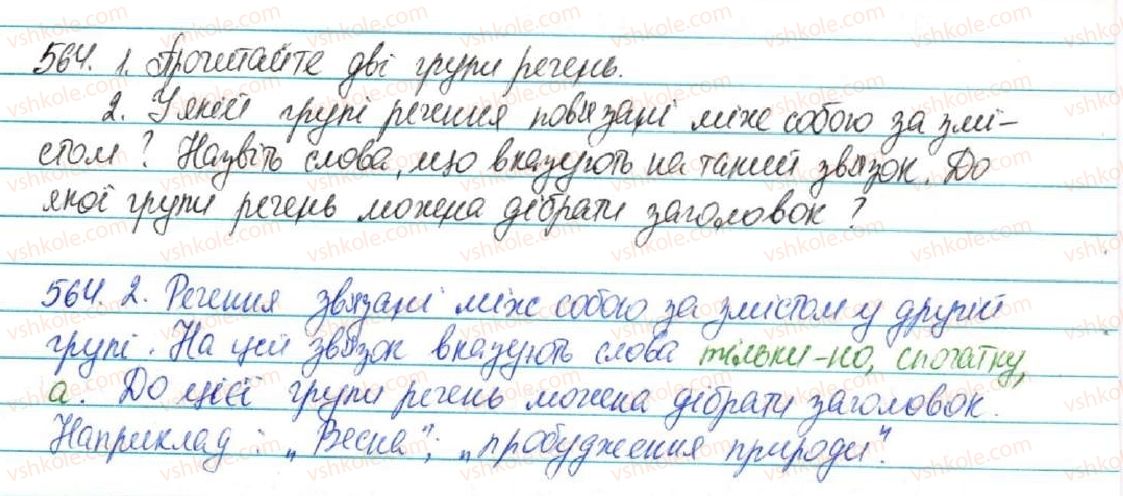 564. 1. Прочитайте дві групи речень.
2. У якій групі речення пов'язані між собою за змі-
стом? Назвіть слова, що вказують на такий звязок. До
якої групи речень можна дібрати заголовок?
564. 2. Речення звязані між собою за змістом у другій
групі. На цей звязок вказують слова тільки-но, спочатку,
а. До цієї групи речень можна дібрати заголовок.
Наприклад: „Весна", „пробудження природи".